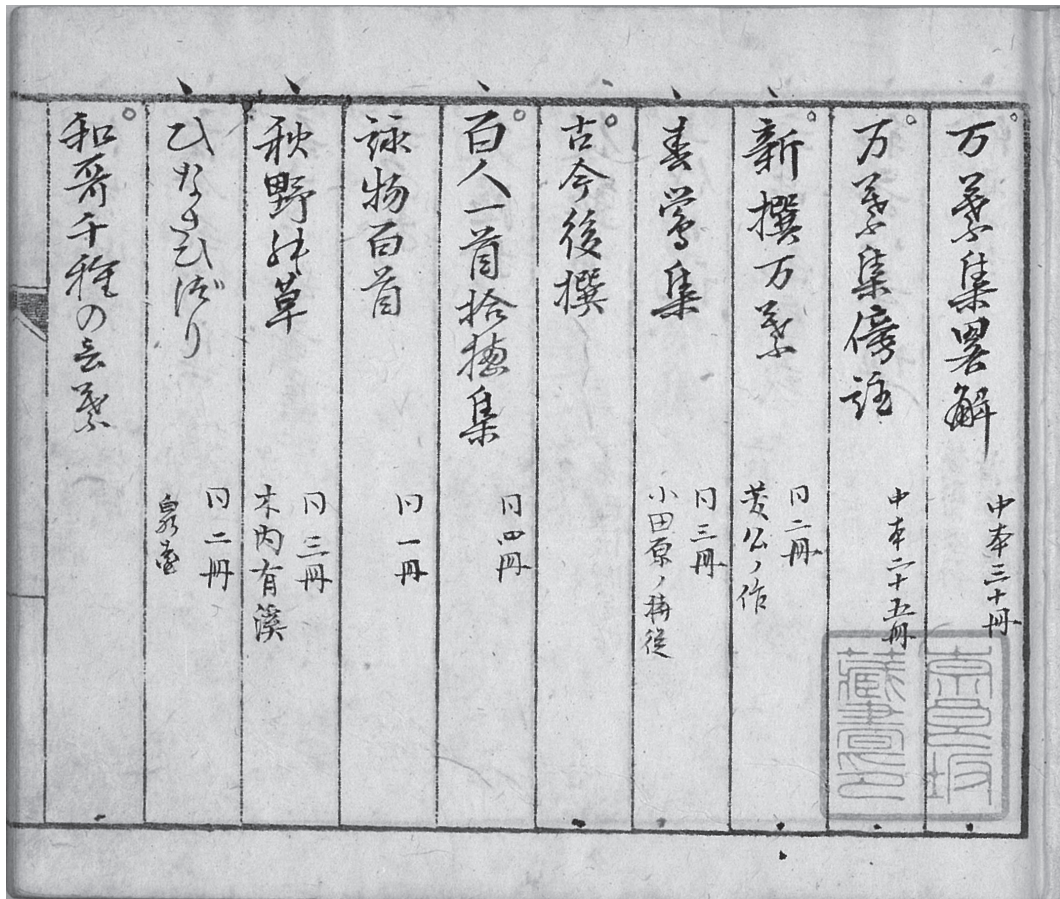 万葉集畧解
中本三十冊
万葉集傍註
中本二十五冊
新撰万葉
同二冊
菅公ノ作
春鶯集
同三冊
小田原ノ
古今後撰
百人一首拾穂集
同四冊
詠物百首
同一冊
秋野の草
同三冊
木内有渓
ひなさへづり
同二冊
和哥千種の言葉
蔵書印